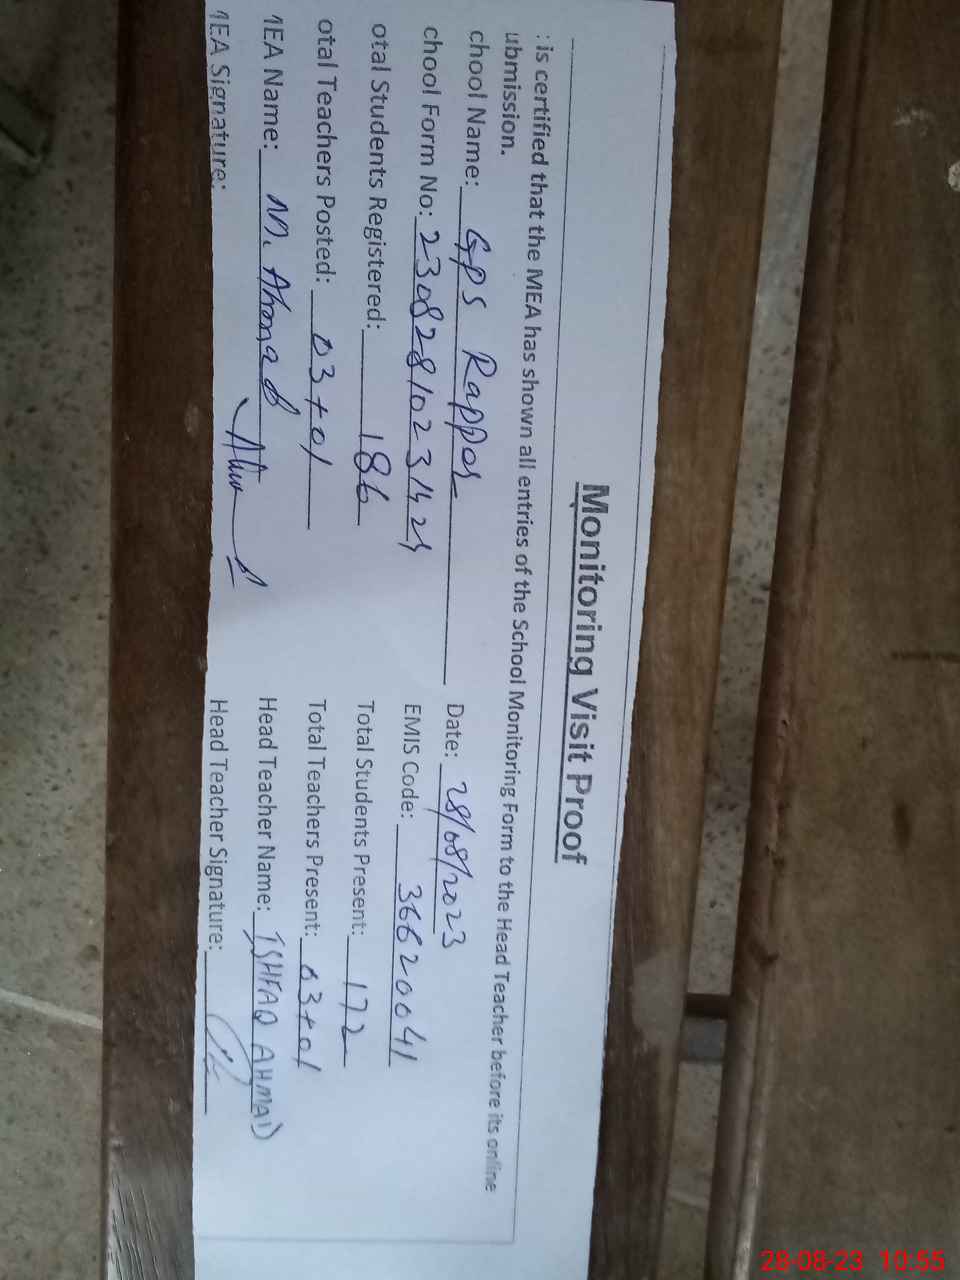 Monitoring Visit Proof
: is certified that the MEA has shown all entries of the School Monitoring Form to the Head Teacher before its online
ubmission.
chool Name: GPS Rappar Date: 28/08/2023
chool Form No: 23082810231424 EMIS Code: 36620041
otal Students Registered: 186 Total Students Present: 172
otal Teachers Posted: 03+01 Total Teachers Present: 03+01
1EA Name: M. Ahmad Head Teacher Name: ISHFAQ AHMAD
1EA Signature: Head Teacher Signature:
28-08-23 10:55